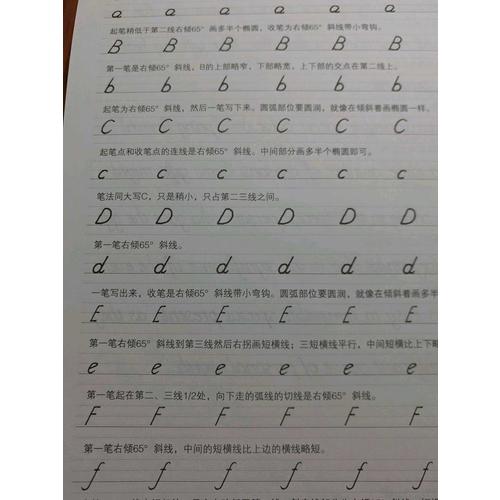 a a a a a a
起笔稍低于第二线右倾65°画多半个椭圆，收笔为右倾65°斜线带小弯钩。
B B B B B B
第一笔是右倾65°斜线，B的上部略窄，下部略宽，上下部的交点在第二线上。
b b b b b b
起笔为右倾65°斜线，然后一笔写下来。圆弧部位要圆润，就像在倾斜着画椭圆一样。
C C C C C C
起笔点和收笔点的连线是右倾65°斜线。中间部分画多半个椭圆即可。
c c c c c c
笔法同大写C，只是稍小，只占第二三线之间。
D D D D D D
第一笔右倾65°斜线。
d d d d d d
一笔写出来，收笔是右倾65°斜线带小弯钩。圆弧部位要圆润，就像在倾斜着画多半
E E E E E E
第一笔右倾65°斜线到第三线然后右拐画短横线；三短横线平行，中间短横比上下略
e e e e e e
第一笔起在第二、三线1/2处，向下走的弧线的切线是右倾65°斜线。
F F F F F F
第一笔右倾65°斜线，中间的短横线比上边的横线略短。
f f f f f f